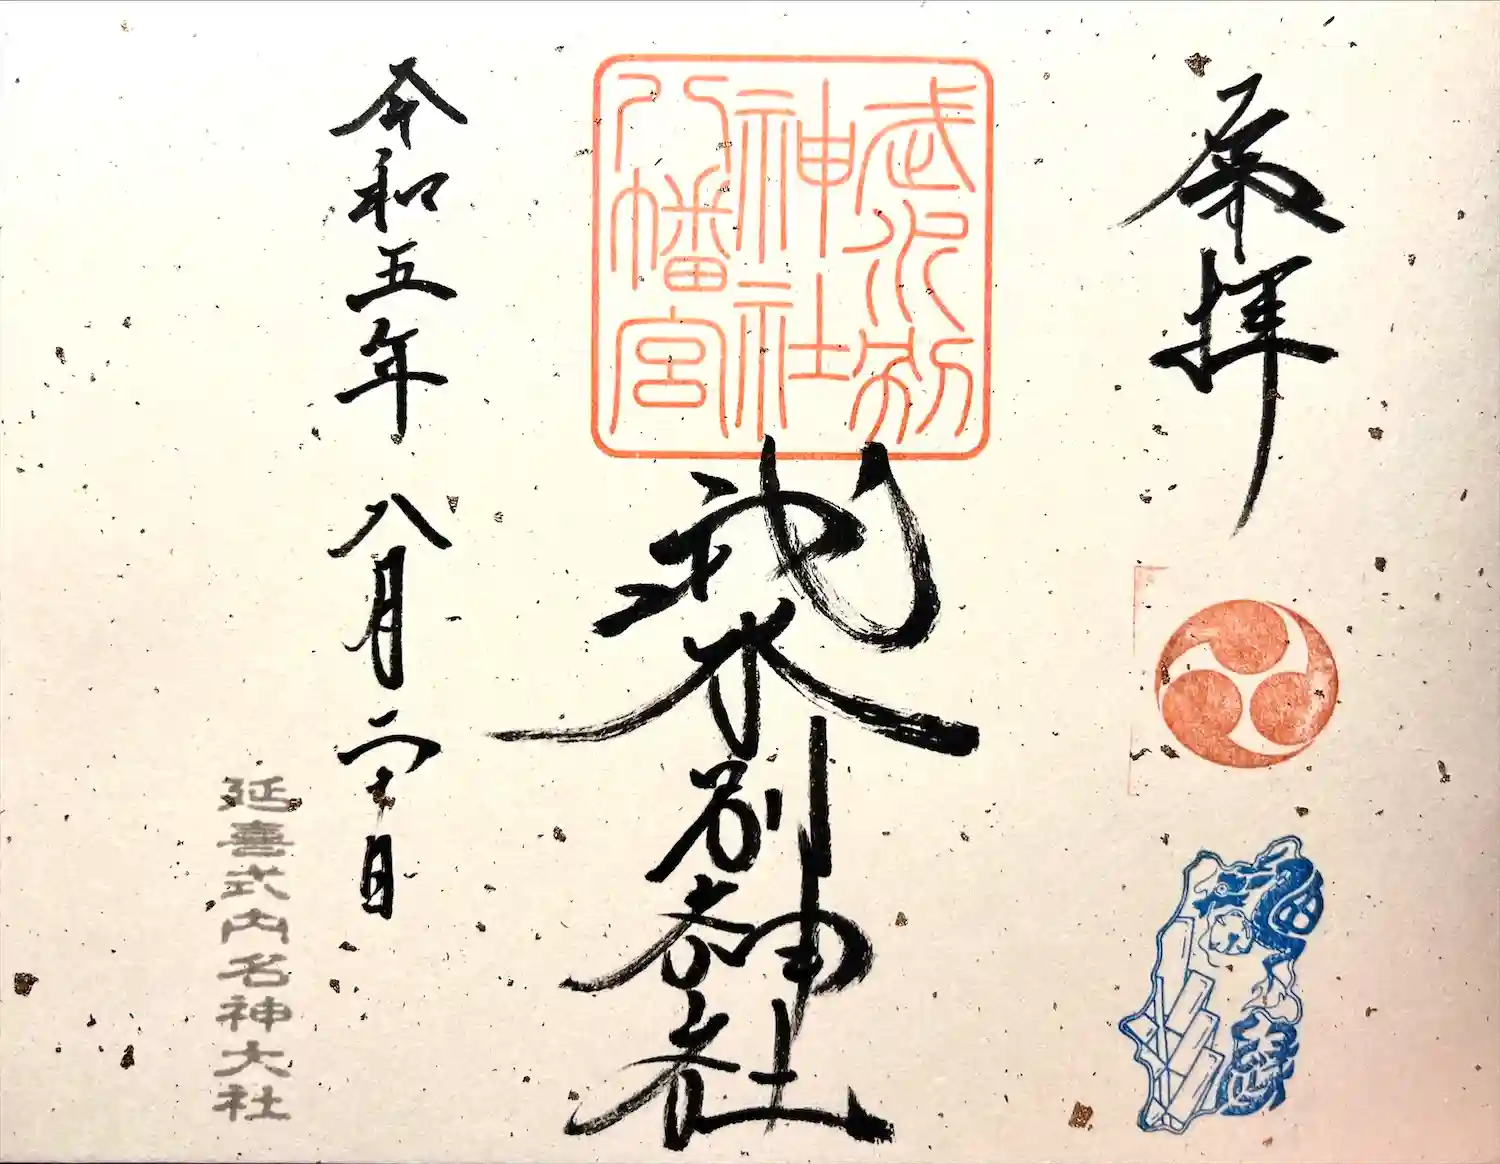 奉拝
武水別
神社
八幡宮
武水別神社
令和五年 八月二十日
延喜式内名神大社